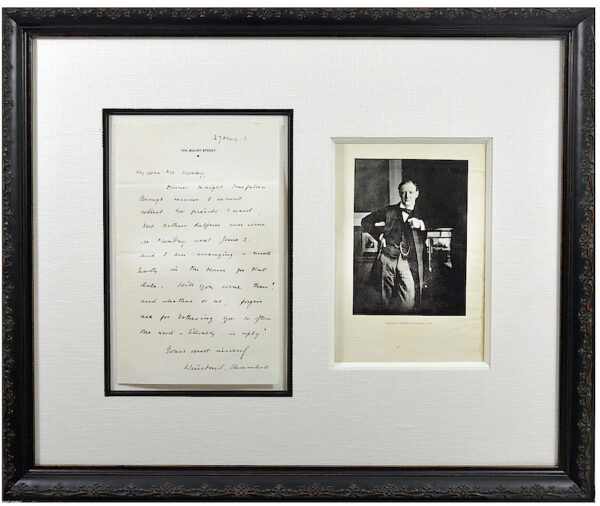 105, MOUNT STREET,
W.
My dear Mr. Morley
Dinner tonight has fallen
through because I cannot
collect the friends I want,
but Arthur Balfour will come
on Monday next June 3.
and I am arranging a small
party in the House for that
date. Will you come then?
and whether or no, forgive
me for bothering you so often.
in reply?
Yours most sincerely
Winston S. Churchill